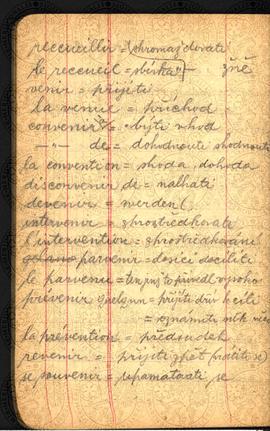 recceuillir = shromažďovati
le recceuil = sbírka - žně
venir = přijíti
la venue = příchod
convenir = býti vhod
-"- de = dohodnouti shodnouti
la convention = shoda, dohoda
disconvenir de = nalhati
devenir = werden (
intervenir = zprostředkovati
l'intervention = zprostředkování
parvenir = docíci docíliti
le parvenu = ten jenž to přivedl vysoko
prévenir quelqun = přijíti dřív k cíli
= oznámiti něk něco
la prévention = předsudek
revenir = přijíti zpět vrátiti se)
se souvenir = upamatovati se